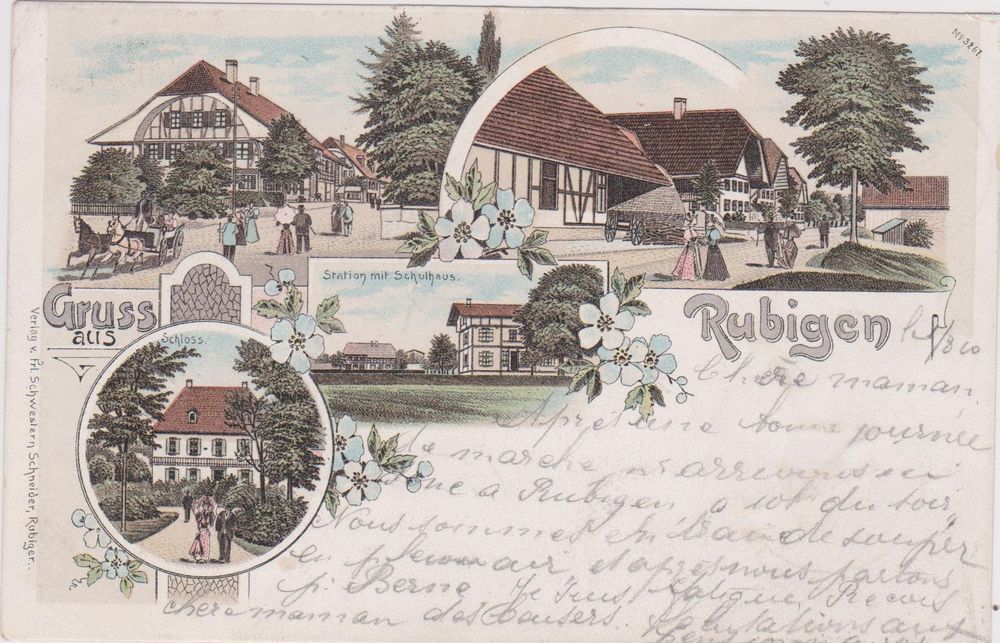 No 3267.
Station mit Schulhaus.
Gruss
aus
Rubigen
Schloss.
Verlag v. Frl. Schwestern Schneider, Rubigen.
Chere maman
Après une bonne journée
de marche
a Rubigen a du soir
Nous sommes en train de souper
en plein air et apres nous partons
p. Berne Je suis fatigué Reçois
chere maman des baisers. Salutations aux